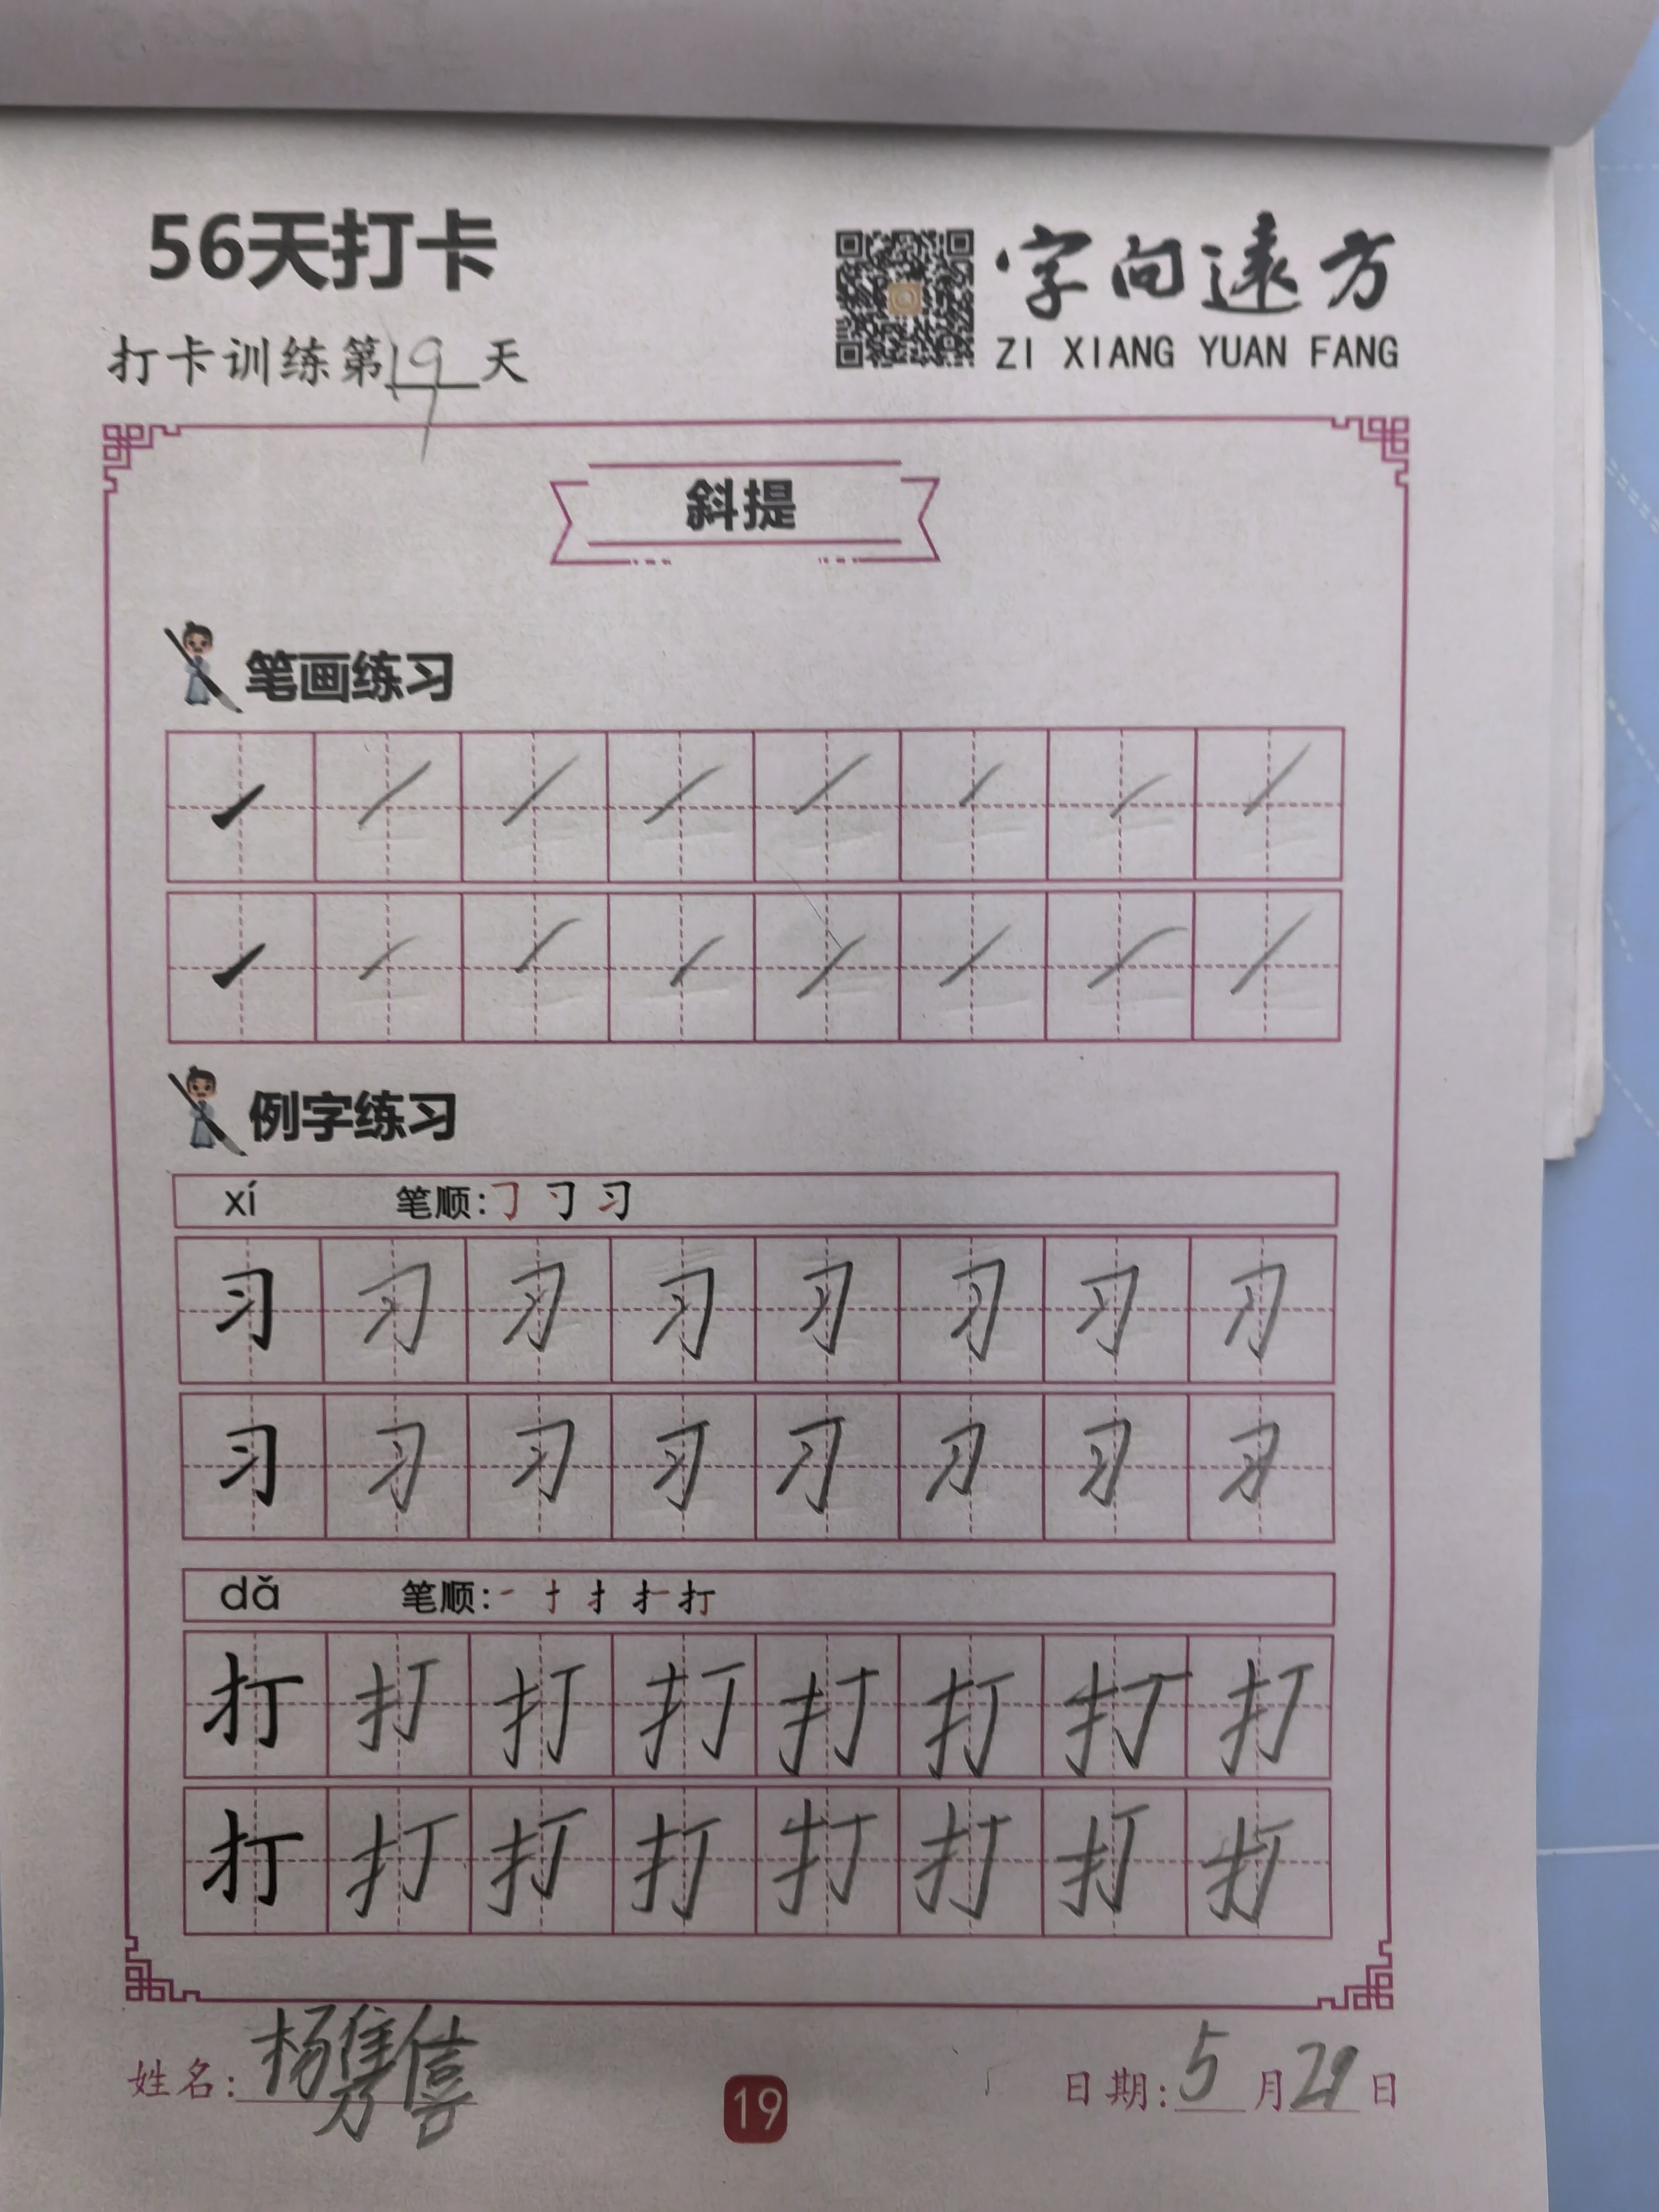 56天打卡
字向遠方
ZI XIANG YUAN FANG
打卡训练第19天
斜提
笔画练习
例字练习
xí 笔顺:
习 习 习 习 习 习 习 习
习 习 习 习 习 习 习 习
dǎ 笔顺:一 十 扌 扌 打
打 打 打 打 打 打 打 打
打 打 打 打 打 打 打 打
姓名:杨
19
日期:5月29日